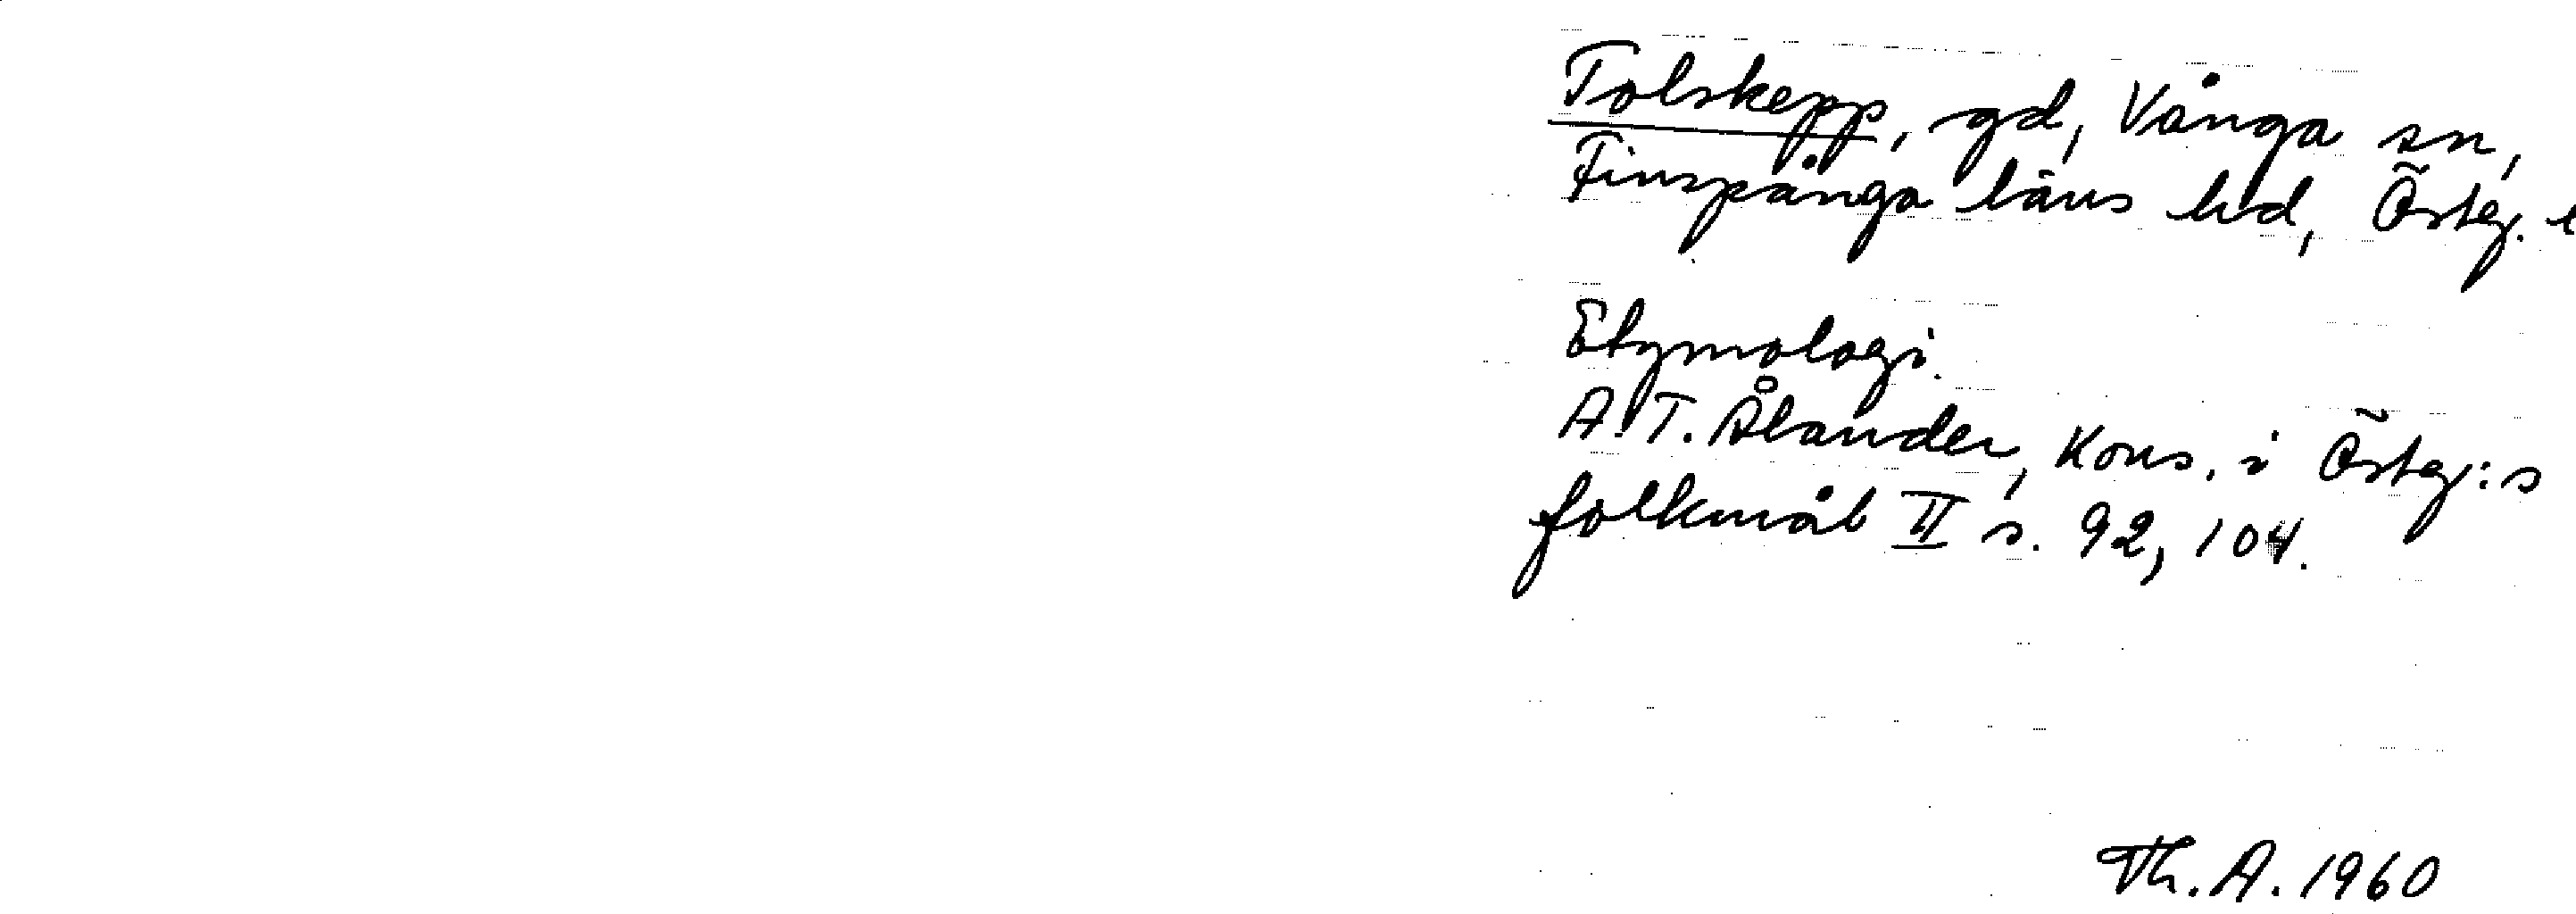 Tolskepp, gd, Vånga sn,
Finspånga läns hd, Österg. l
Etymologi.
A.T. Ålander, Kons. i Österg:s
folkmål II s. 92, 104.
Th. A. 1960